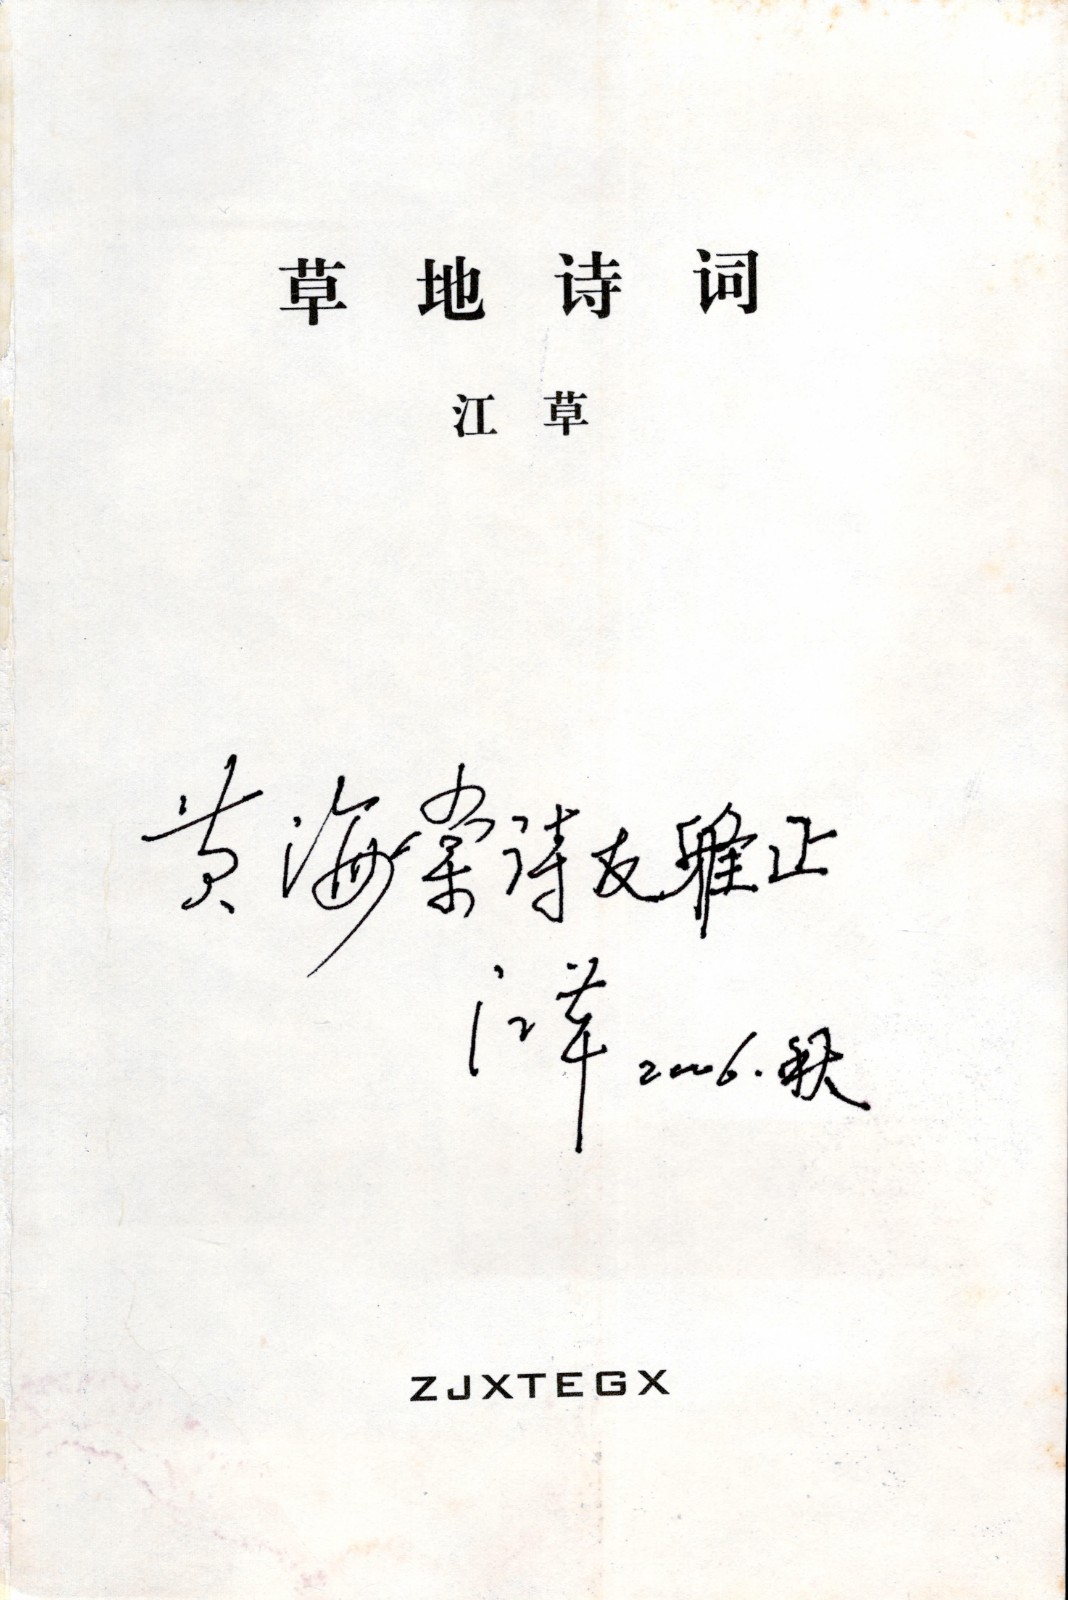 草地诗词
江草
黄海棠诗友雅正
江草 2006.秋
ZJXTEGX